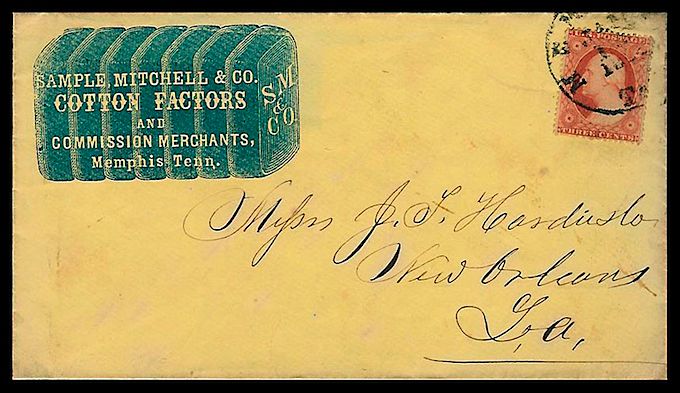 SAMPLE, MITCHELL & CO.
COTTON FACTORS
AND
COMMISSION MERCHANTS,
Memphis, Tenn.
S.M
& CO.
U.S. POSTAGE
THREE CENTS
Messrs J. F.
New Orleans
La,